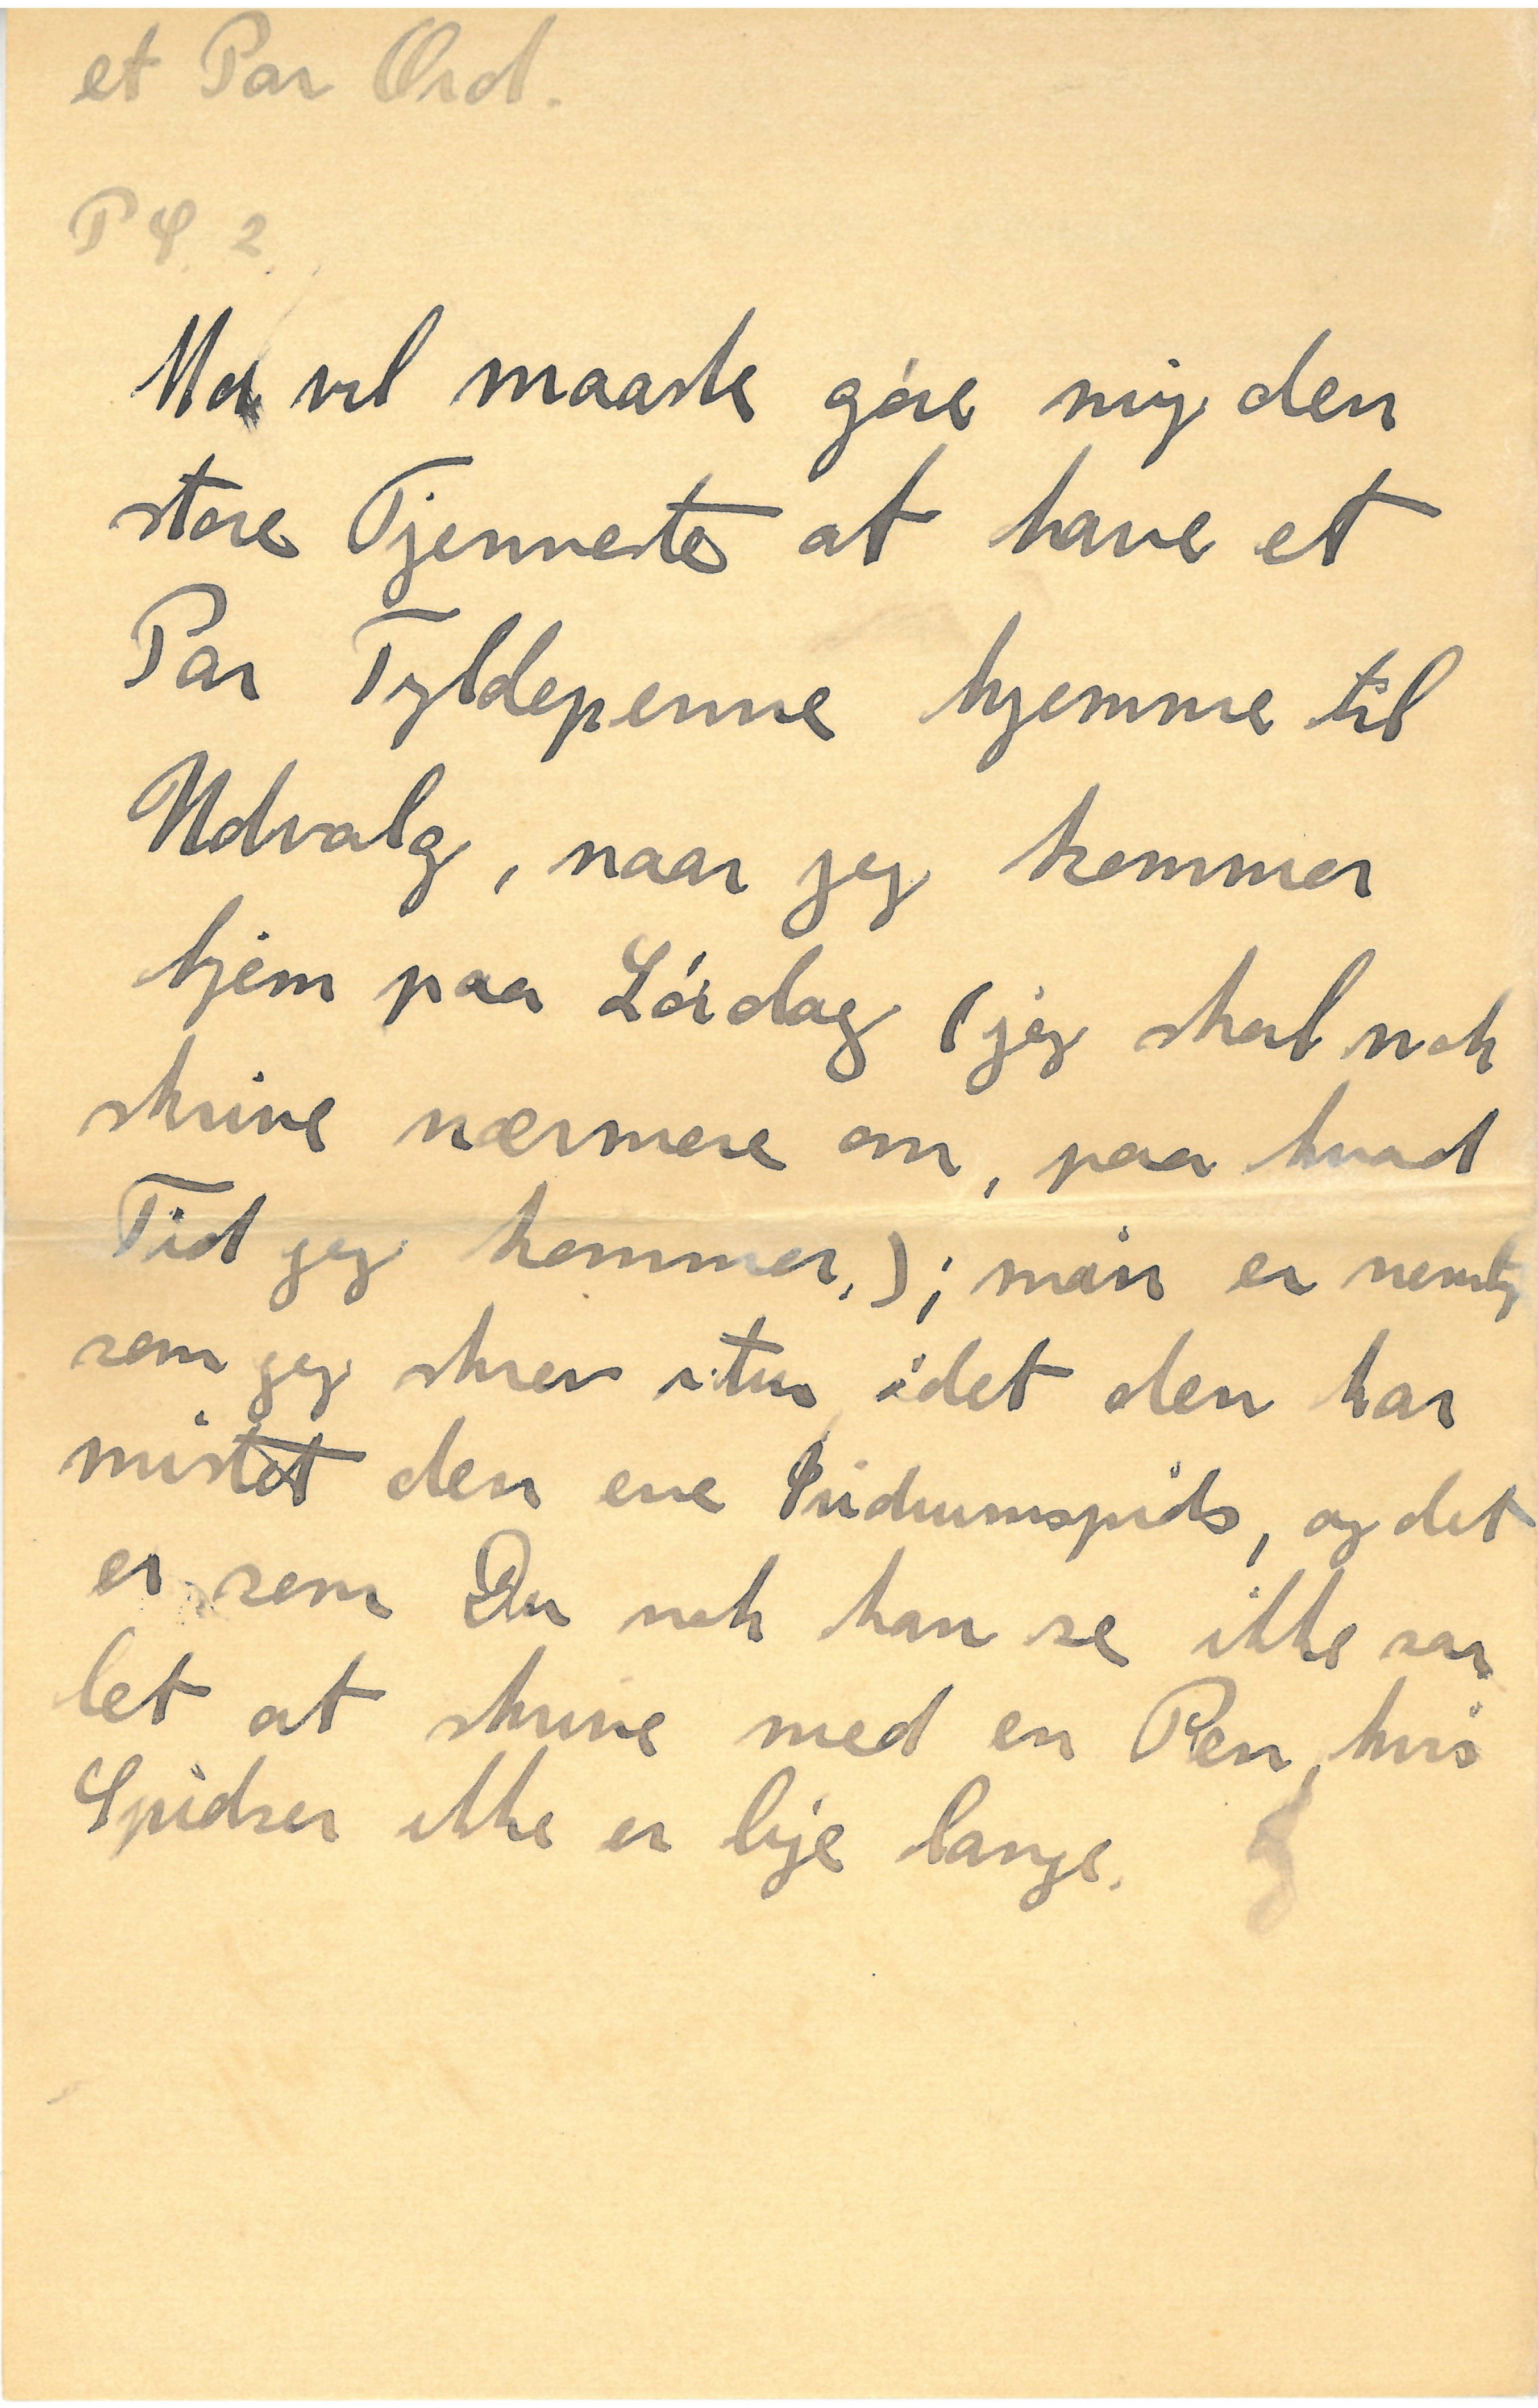 et Par Ord.
P S. 2.
Mor vil maaske gøre mig den
store Tjenneste at have et
Par Fyldepenne hjemme til
Udvalg, naar jeg kommer
hjem paa Lørdag (jeg skal nok
skrive nærmere om, paa hvad
Tid jeg kommer.); min er nemlig
som jeg skrev itu, idet den har
mistet den ene Iridiumspids, og det
er som Du nok kan se ikke saa
let at skrive med en Pen, hvis
Spidser ikke er lige lange.